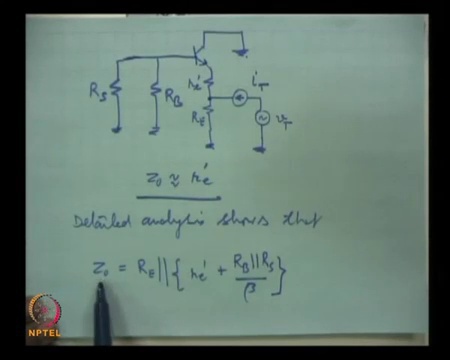 R_S
R_B
r_e'
R_E
i_T
v_T
z_o ≈ r_e'
Detailed analysis shows that
z_o = R_E || { r_e' + (R_B || R_S)/β }
NPTEL